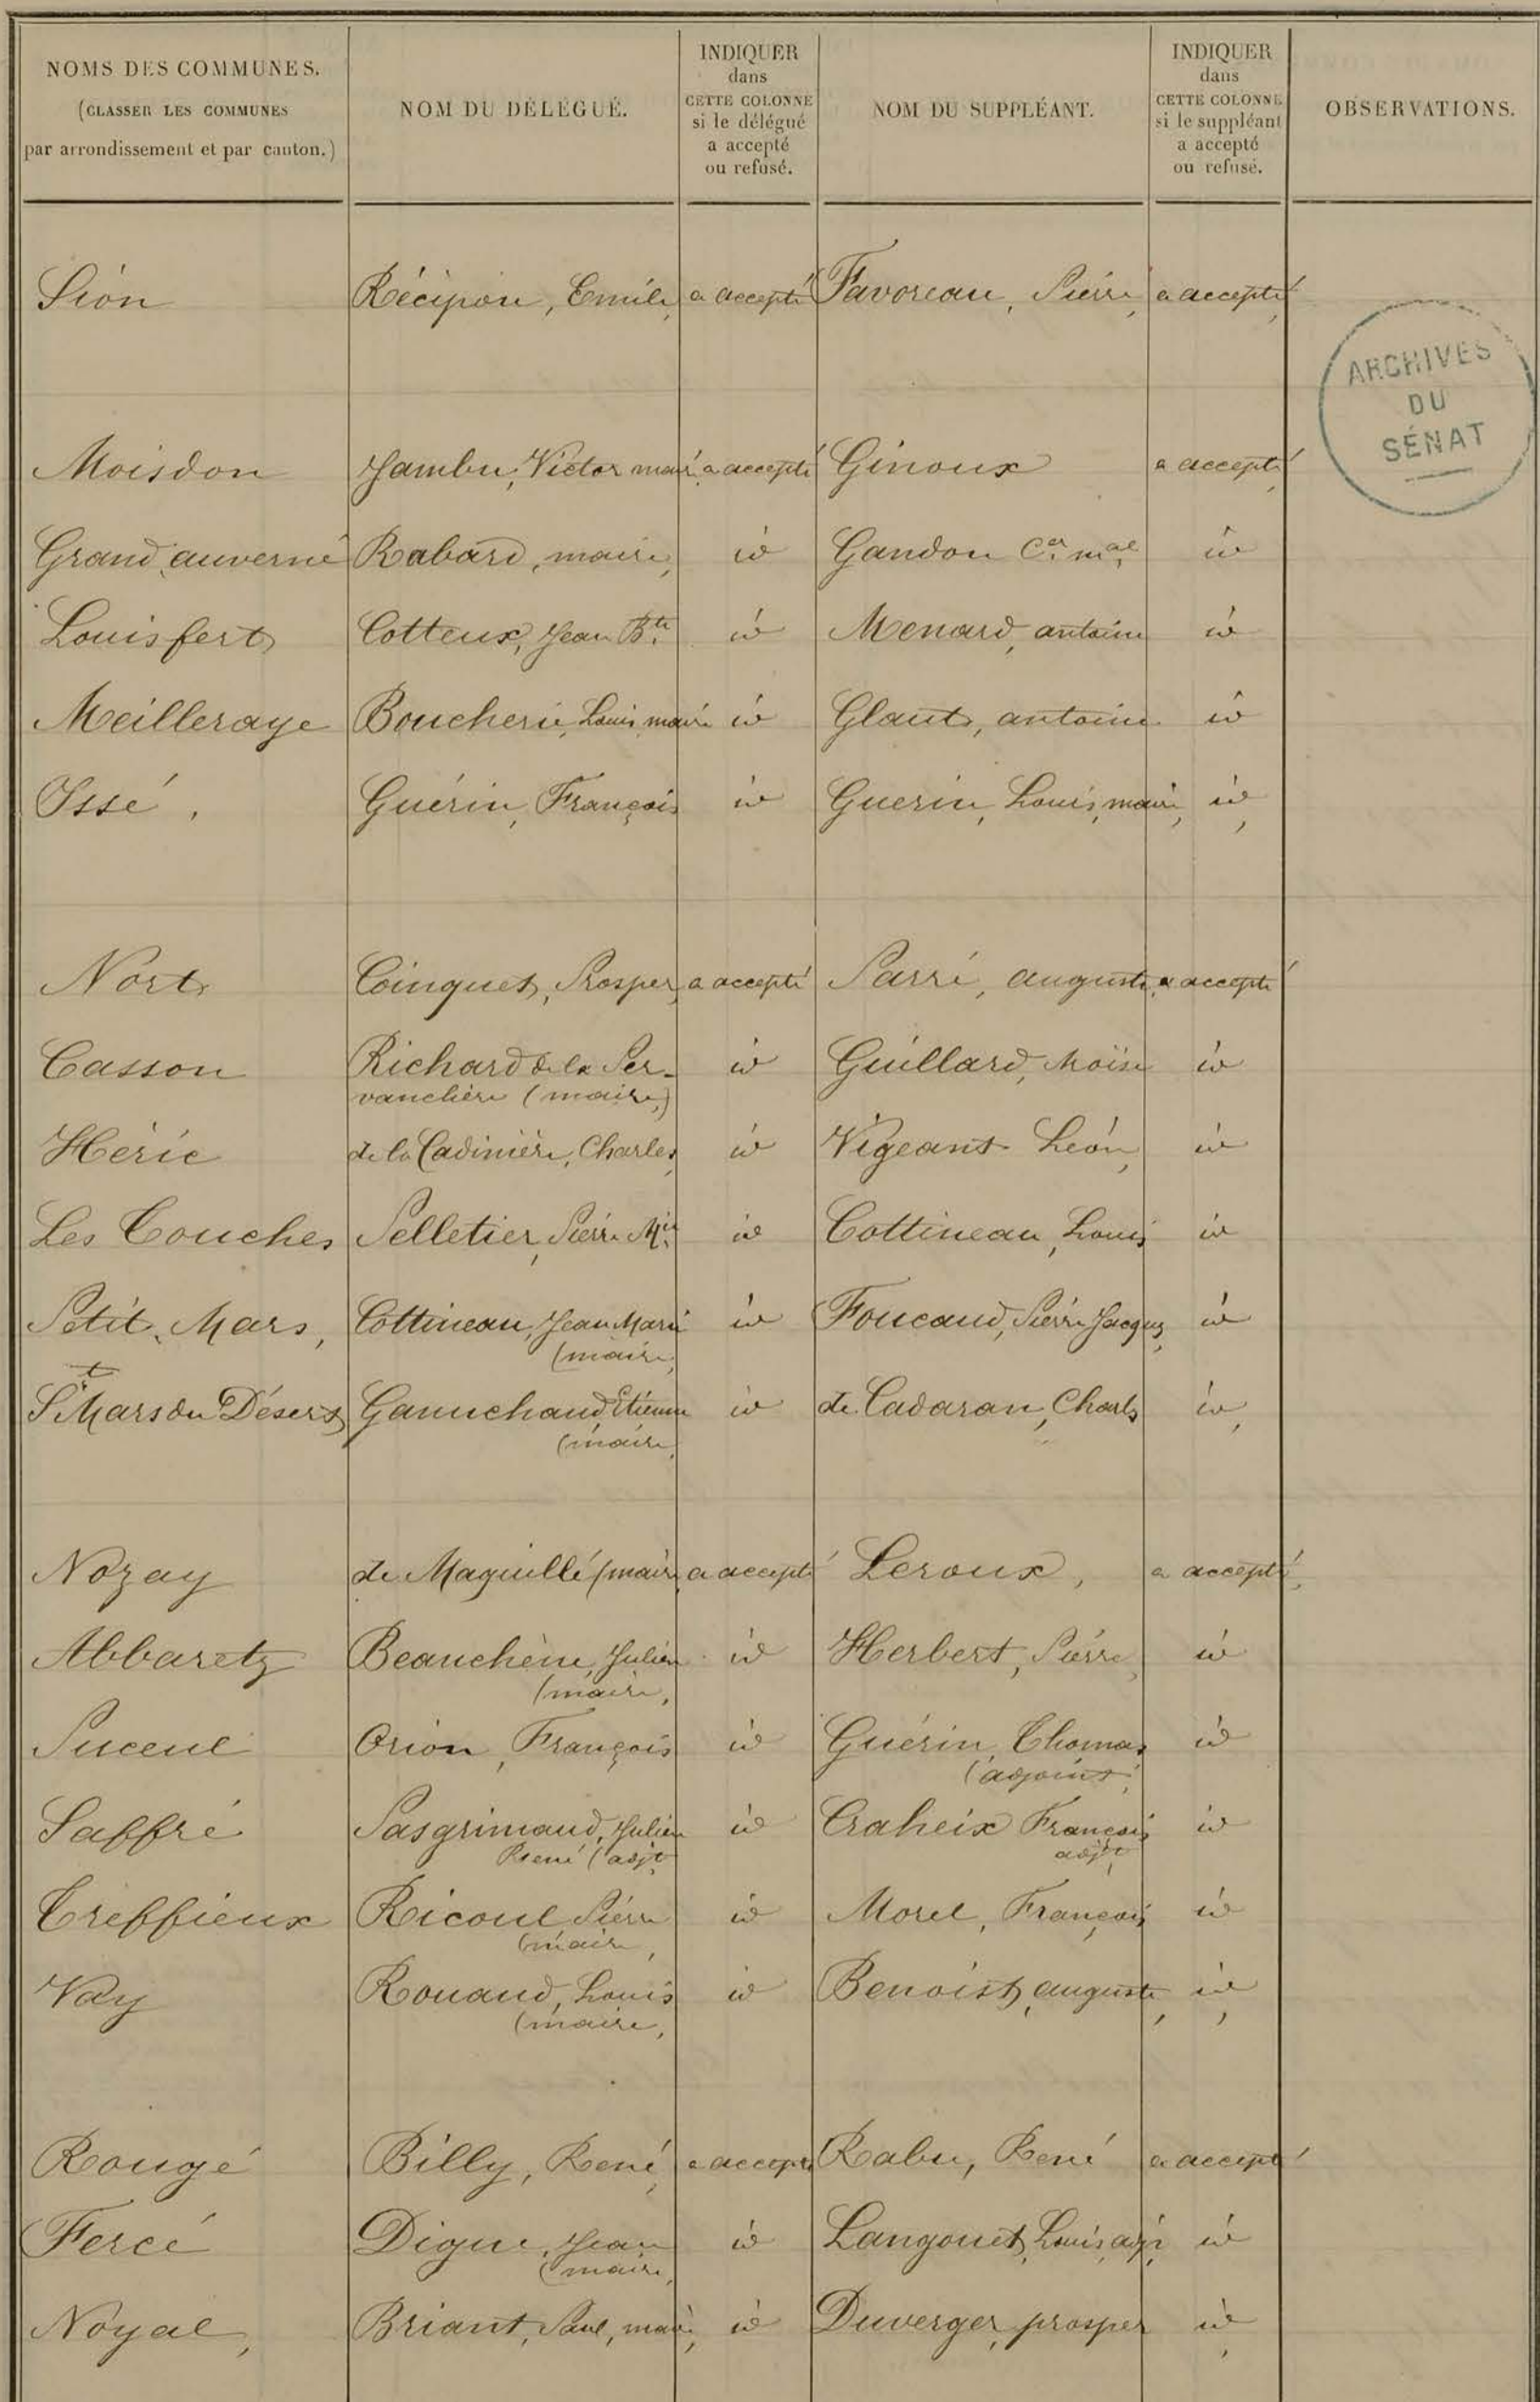 NOMS DES COMMUNES.
(CLASSER LES COMMUNES
par arrondissement et par canton.)
NOM DU DÉLÉGUÉ.
INDIQUER
dans
CETTE COLONNE
si le délégué
a accepté
ou refusé.
NOM DU SUPPLÉANT.
INDIQUER
dans
CETTE COLONNE
si le suppléant
a accepté
ou refusé.
OBSERVATIONS.
Sion Récipon, Emile, a accepté Favoreau, Pierre, a accepté,
ARCHIVES
DU
SÉNAT
Moisdon Jambu, Victor maire a accepté Ginoux a accepté,
Grand auverné Rabard, maire, id Gandon Cer. mal, id
Louisfert Cotteux, Jean Bte id Menard, antoine id
Meilleraye Boucherie, Louis, maire id Glant, antoine id
Issé, Guérin, François id Guerin, Louis, maire, id,
Nort Coinquet, Prosper, a accepté Parré, auguste, a accepté
Casson Richard de la Per- id Guillard, Moïse id
vanchère (maire,)
Héric de la Cadinière, Charles, id Vigeant Léon, id
Les Touches Pelletier, Pierre Mie id Cottineau, Louis id
Petit, Mars, Cottineau, Jean Marie id Foucaud, Pierre Jacques, id
(maire,
St Mars du Désert Ganuchaud, Etienne id de Cadaran, Charles id,
(maire,
Nozay de Maquillé (maire, a accepté Leroux, a accepté,
Abbaretz Beauchêne, Julien id Herbert, Pierre, id
(maire,
Puceul Orion, François id Guérin, Thomas id
(adjoint,
Saffré Pasgrimaud, Julien id Craheix François id
René (adjt adjt
Treffieux Ricoul Pierre id Morel, François id
(maire,
Vay Rouaud, Louis id Benoist, auguste, id,
(maire,
Rougé Billy, René, a accepté Rabu, René a accepté
Fercé Digue, Jean id Langouet, Louis, adjt id
(maire,
Noyal, Briant, Paul, maire, id Duverger, prosper id,